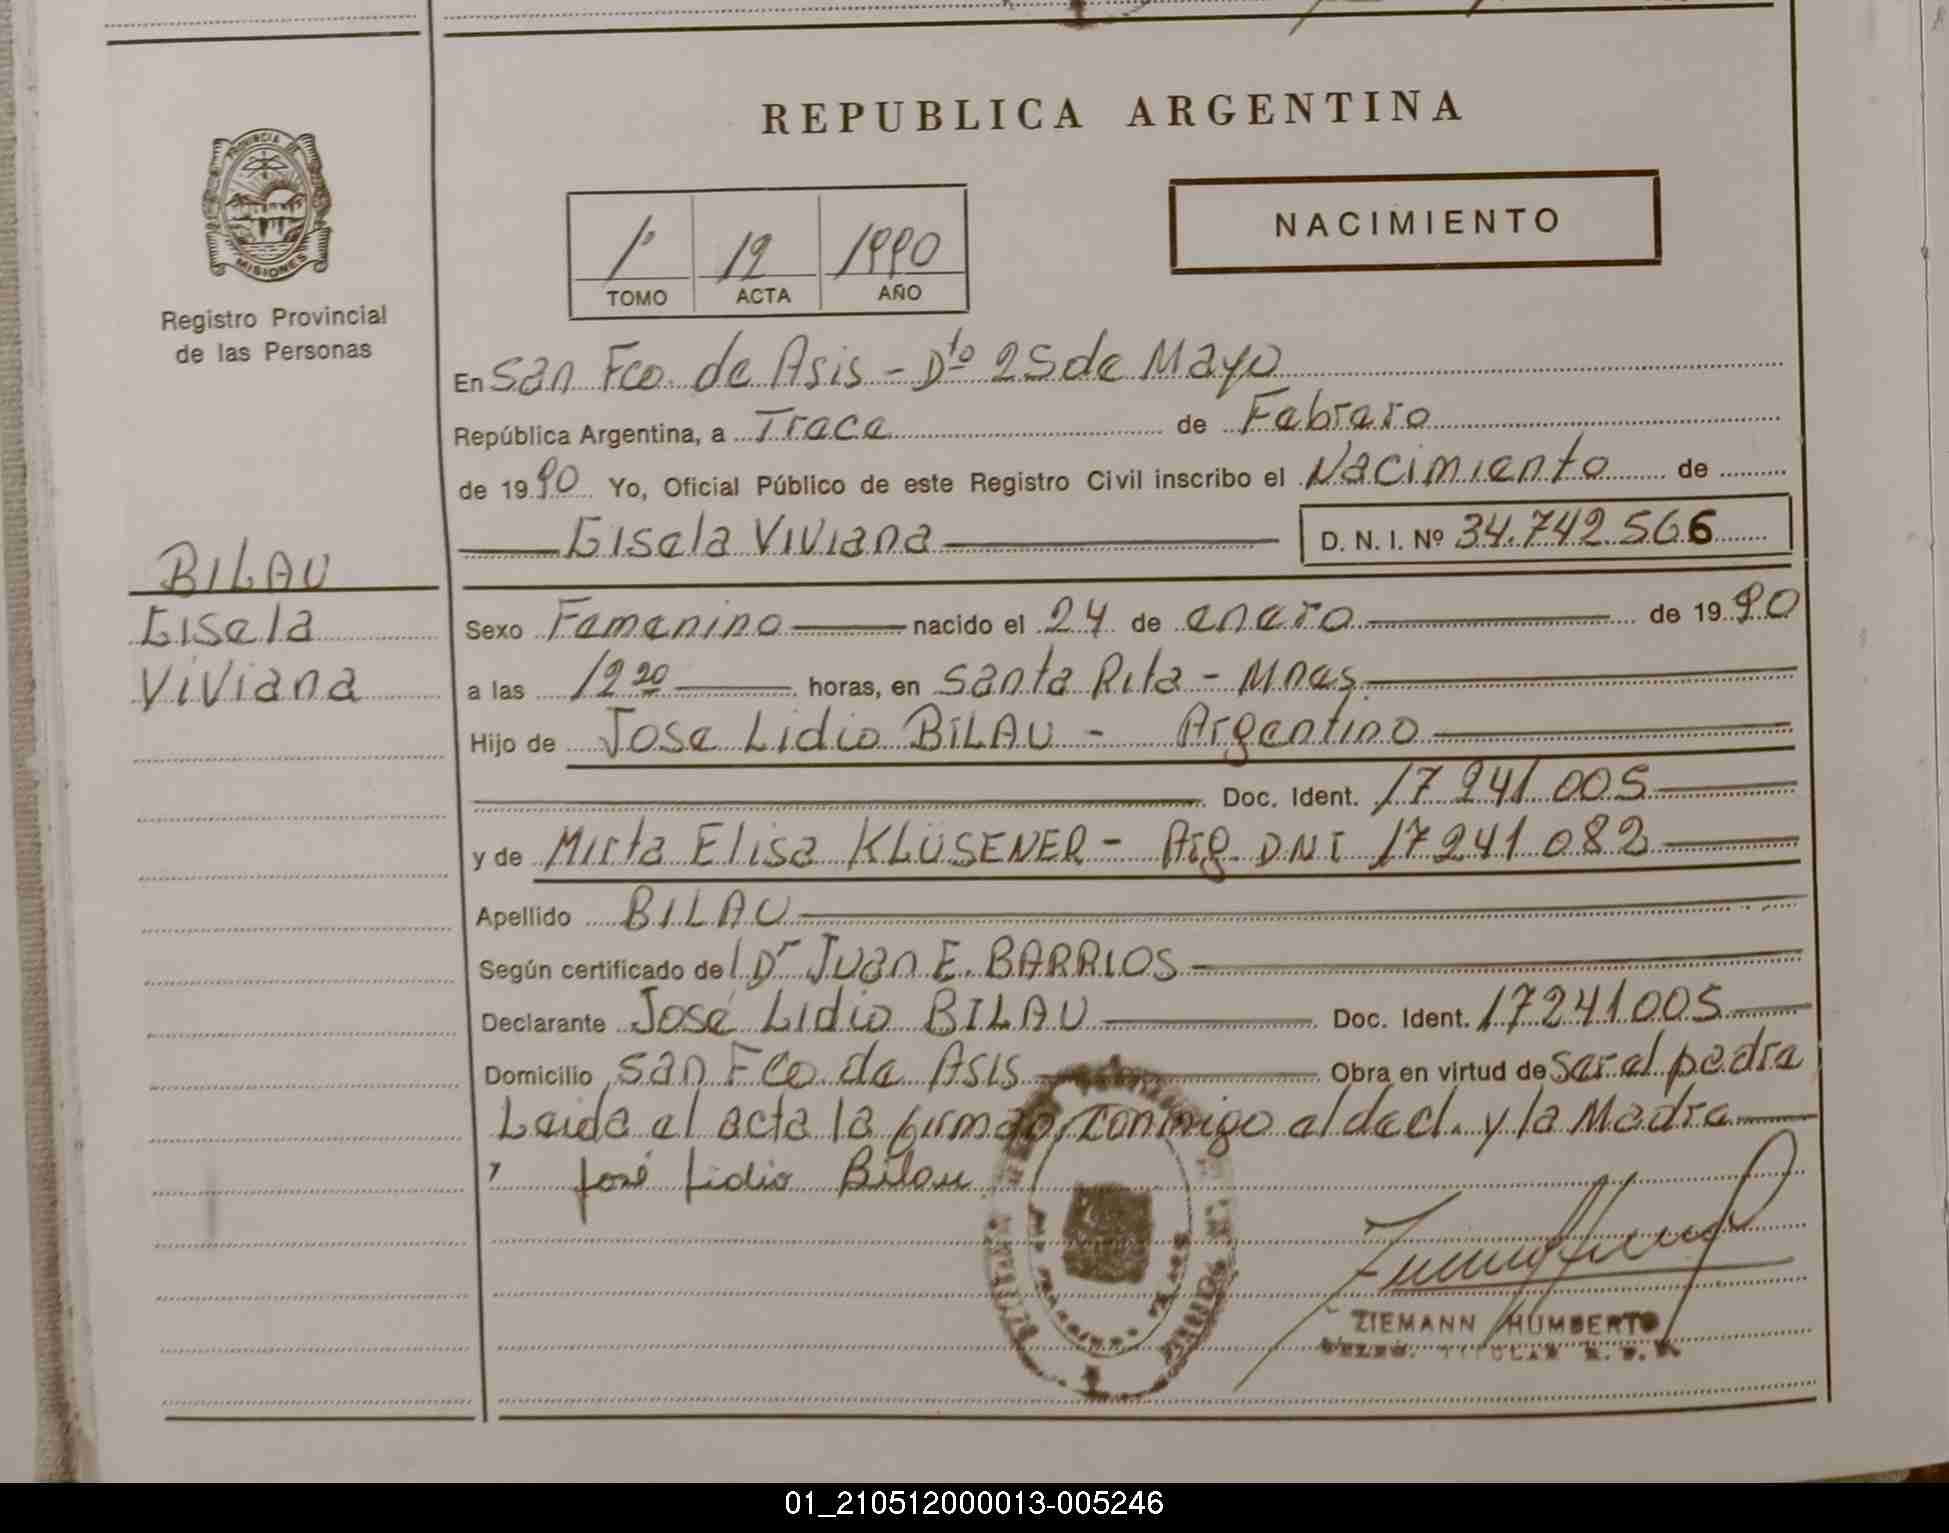 REPUBLICA ARGENTINA
PROVINCIA DE
MISIONES
Registro Provincial
de las Personas
1º 12 1990
TOMO ACTA AÑO
NACIMIENTO
En San Fco. de Asis - Dto 25 de Mayo
República Argentina, a Trece de Febrero
de 1990 Yo, Oficial Público de este Registro Civil inscribo el Nacimiento de
Gisela Viviana D. N. I. Nº 34.742.566
BILAU
Gisela
Viviana
Sexo Femenino nacido el 24 de enero de 1990
a las 12 20 horas, en Santa Rita - Mnes.
Hijo de Jose Lidio BILAU - Argentino
Doc. Ident. 17 241 005
y de Mirta Elisa KLÜSENER - Arg. DNI 17 241 082
Apellido BILAU
Según certificado del Dr Juan E. BARRIOS
Declarante José Lidio BILAU Doc. Ident. 17241005
Domicilio San Fco de Asis Obra en virtud de ser el padre
Leida el acta la firman conmigo el decl. y la Madre
José Lidio Bilau
ZIEMANN HUMBERTO
TITULAR
01_210512000013-005246